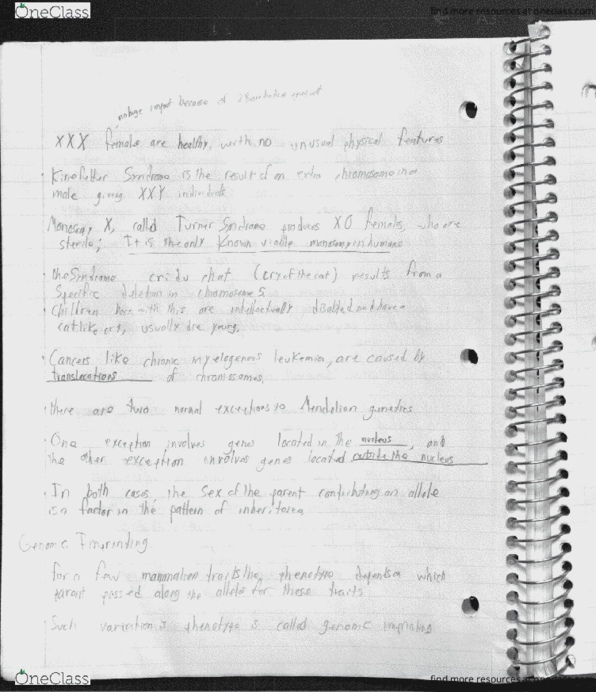 OneClass
find more resources at oneclass.com
because of
XXX females are healthy, with no unusual physical features
Kinefelter Syndrome is the result of an extra chromosome in a
male giving XXY individuals
Monosomy X, called Turner Syndrome produces XO females, who are
sterile; It is the only known viable monosomy in humans
the Syndrome cri du chat (cry of the cat) results from a
Specific deletion in chromosome 5
Children born with this are intellectually disabled and have a
catlike cry, usually die young.
Cancers like chronic myelogenous leukemia, are caused by
translocations of chromosomes.
there are two normal exceptions to Mendelian genetics
One exception involves genes located in the nucleus, and
the other exception involves genes located outside the nucleus
In both cases, the Sex of the parent contributing an allele
is a factor in the pattern of inheritance
Genomic Imprinting
for a few mammalian traits the phenotype depends on which
parent passed along the alleles for those traits
Such variation in phenotype is called genomic imprinting
OneClass
find more resources at oneclass.com